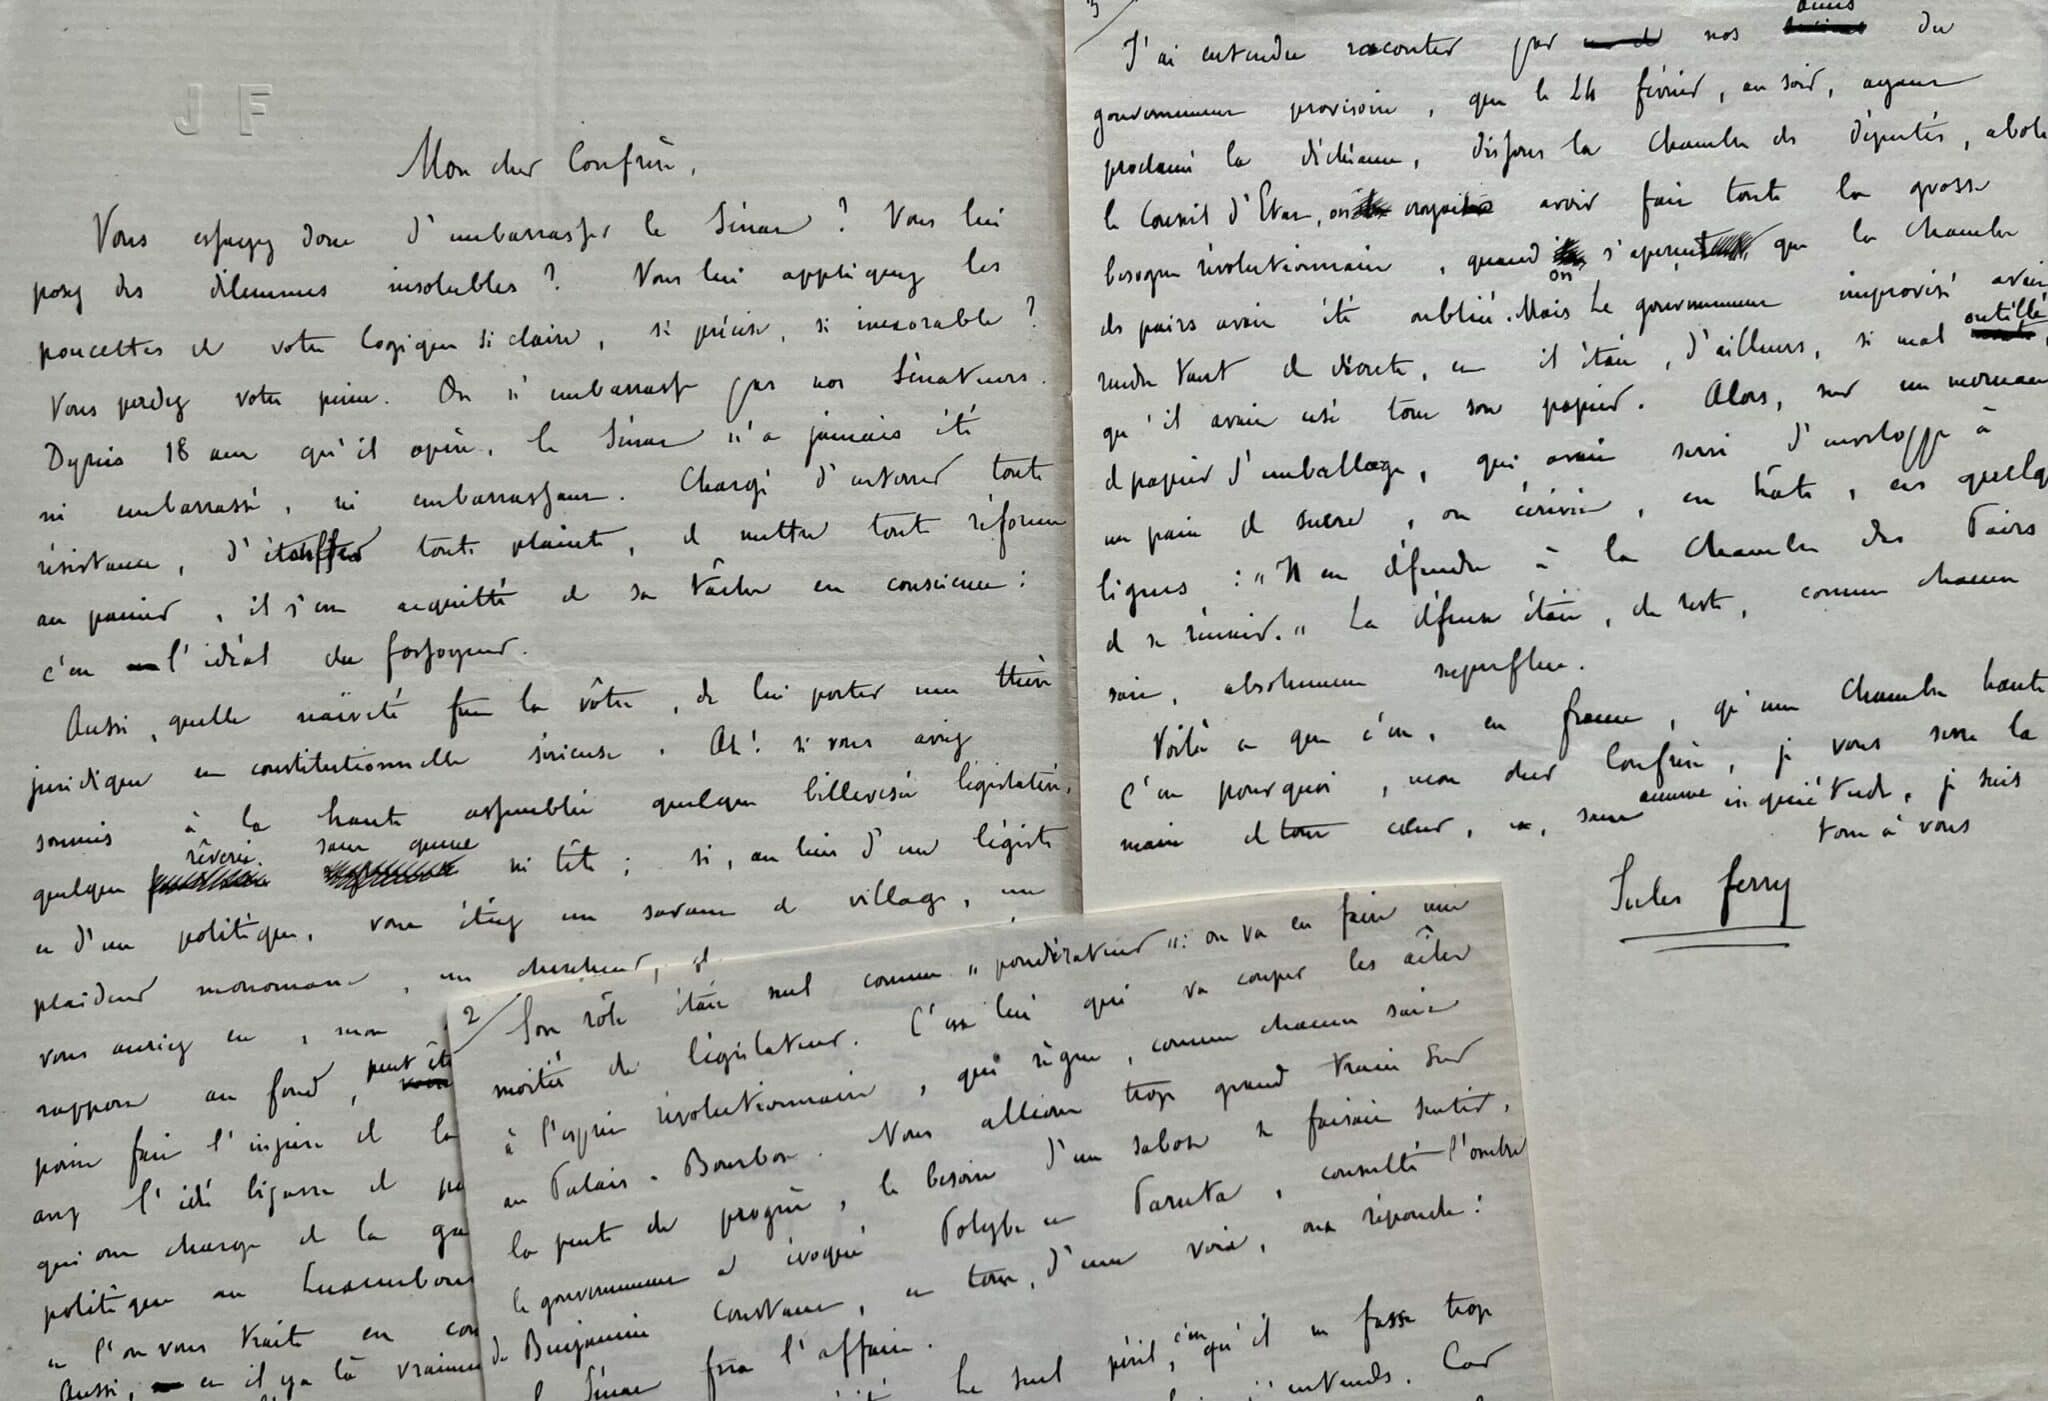 J F
Mon cher Confrère,
Vous essayez donc d'embarrasser le Sénat ? Vous lui
posez des dilemmes insolubles ? Vous lui appliquez les
poucettes de votre logique si claire, si précise, si inexorable ?
Vous perdez votre peine. On n'embarrasse pas nos Sénateurs.
Depuis 18 ans qu'il opère, le Sénat n'a jamais été
ni embarrassé, ni embarrassant. Chargé d'enterrer toute
résistance, d'étouffer toute plainte, de mettre toute réforme
au panier, il s'en acquitte de sa tâche en conscience :
c'est l'idéal du fossoyeur.
Aussi, quelle naïveté fut la vôtre, de lui porter une thèse
juridique et constitutionnelle sérieuse. Ah ! si vous aviez
soumis à la haute assemblée quelque billevesée législative,
quelque rêverie sans queue ni tête ; si, au lieu d'un légiste
et d'un politique, vous étiez un savant de village, un
plaideur monomane, un chercheur, et
vous auriez eu, mon
rapport au fond, peut être
point fait l'injure de la
avez l'idée bizarre de
qui ont charge de la
politique au Luxembourg
et l'on vous traite en
Aussi, et il y a là vraiment
2
Son rôle était nul comme "pondérateur" : on va en faire une
moitié de législateur. C'est lui qui va couper les ailes
à l'esprit révolutionnaire, qui règne, comme chacun sait
au Palais-Bourbon. Nous allions trop grand train sur
la pente du progrès, le besoin d'un sabot se faisait sentir,
le gouvernement a évoqué Polybe et Paruta, consulté l'ombre
de Benjamin Constant, et tous, d'une voix, ont répondu :
le Sénat fera l'affaire.
Le seul péril, c'est qu'il en fasse trop
j'entends. Car
3
J'ai entendu raconter par nos amis du
gouvernement provisoire, que le 24 février, au soir, ayant
proclamé la déchéance, dissous la Chambre des députés, aboli
le Conseil d'Etat, on croyait avoir fait toute la grosse
besogne révolutionnaire, quand on s'aperçut que la Chambre
des pairs avait été oubliée. Mais le gouvernement improvisé avait
rendu tant de décrets, et il était, d'ailleurs, si mal outillé,
qu'il avait usé tout son papier. Alors, sur un morceau
de papier d'emballage, qui avait servi d'enveloppe à
un pain de sucre, on écrivit, en hâte, ces quelques
lignes : "Il est défendu à la Chambre des Pairs
de se réunir." La défense était, du reste, comme chacun
sait, absolument superflue.
Voilà ce que c'est, en France, qu'une Chambre haute
C'est pourquoi, mon cher Confrère, je vous serre la
main de tout cœur, et, sans aucune inquiétude, je suis
tout à vous
Jules Ferry